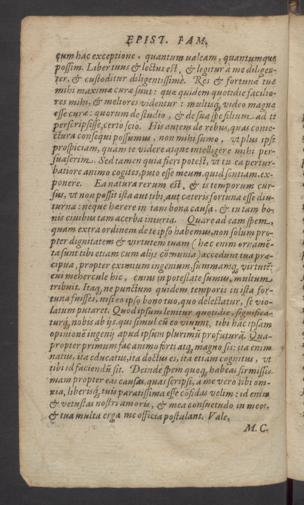 EPIST. FAM.
cum hac exceptione, quantum valeam, quantumque
possim. Liber tuus & lectus est, & legitur a me diligen-
ter, & custoditur diligentissimè. Res & fortunæ tuæ
mihi maximæ curæ sunt: quæ quidem quotidie facilio-
res mihi, & meliores videntur: multisq́; video magnæ
esse curæ: quorum de studio, & de sua spe filium ad te
perscripsisse, certo scio. His autem de rebus, quas conie-
ctura consequi possumus, non mihi sumo, vt plus ipse
prospiciam, quam te videre atque intelligere mihi per-
suaserim. Sed tamen quia fieri potest, vt tu ea pertur-
batiore animo cogites, puto esse meum, quid sentiam ex-
ponere. Ea natura rerum est, & is temporum cur-
sus, vt non possit ista aut tibi, aut cæteris fortuna esse diu-
turna: neque hærere in tam bona causa, & in tam bo-
nis ciuibus tam acerba iniuria. Quare ad eam spem,
quam extra ordinem de te ipso habemus, non solum pro-
pter dignitatem & virtutem tuam (hæc enim ornamē-
ta sunt tibi etiam cum alijs cōmunia) accedunt tua præ-
cipua, propter eximium ingenium, summamq́; virtutē:
cui mehercule hic, cuius in potestate sumus, multum
tribuit. Itaq́; ne punctum quidem temporis in ista for-
tuna fuisses, nisi eo ipso bono tuo, quo delectatur, se vio-
latum putaret. Quod ipsum lenitur quotidie, significa-
turq́; nobis ab ijs, qui simul cū eo viuunt, tibi hāc ipsam
opinionē ingenij apud ipsum plurimū profuturā. Qua-
propter primum fac animo forti atq́; magno sis: ita enim
natus, ita educatus, ita doctus es, ita etiam cognitus, vt
tibi id faciendū sit. Deinde spem quoq́; habeas firmissi-
mam propter eas causas, quas scripsi, a me vero tibi om-
nia, liberisq́; tuis paratissima esse confidas velim: id enim
& vetustas nostri amoris, & mea consuetudo in meos,
& tua multa erga me officia postulant. Vale.
M. C.